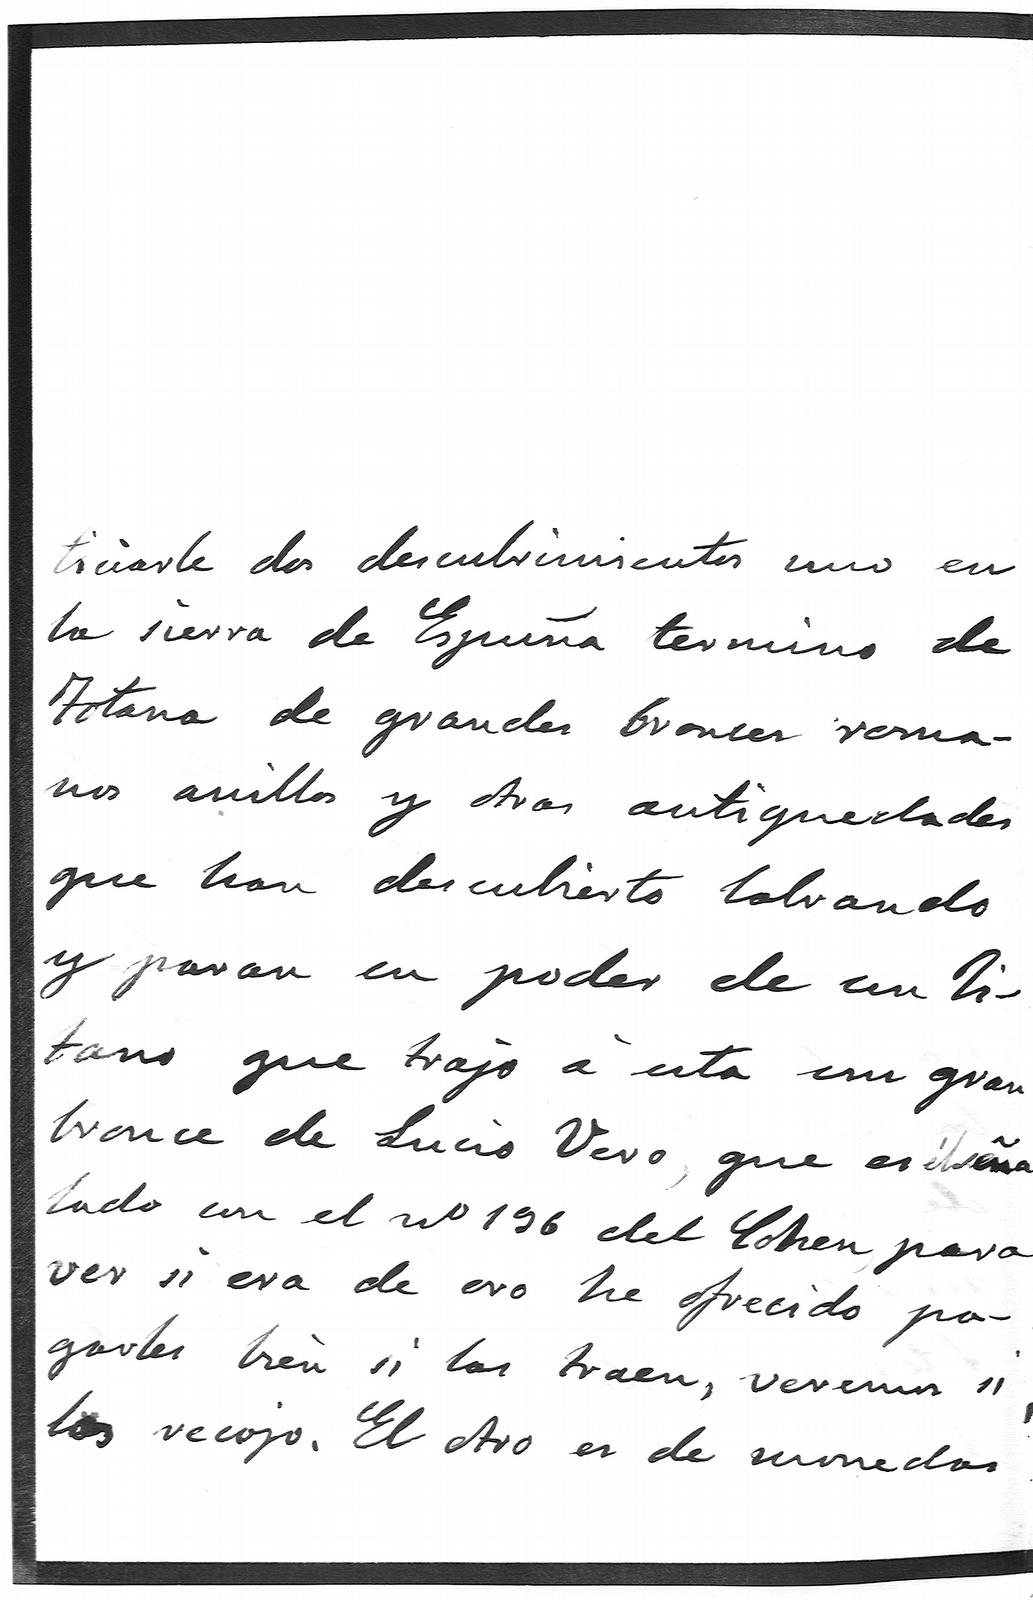 ticiarle dos descubrimientos uno en
la sierra de España termino de
Totana de grandes bronces roma-
nos anillos y otras antiguedades
que han descubierto labrando
y paran en poder de un Ji-
tano que trajo á esta un gran
bronce de Lucio Vero, que es el seña
lado con el nº 196 del Cohen, para
ver si era de oro he ofrecido pa-
garles bien si las traen, veremos si
las recojo. El otro es de monedas